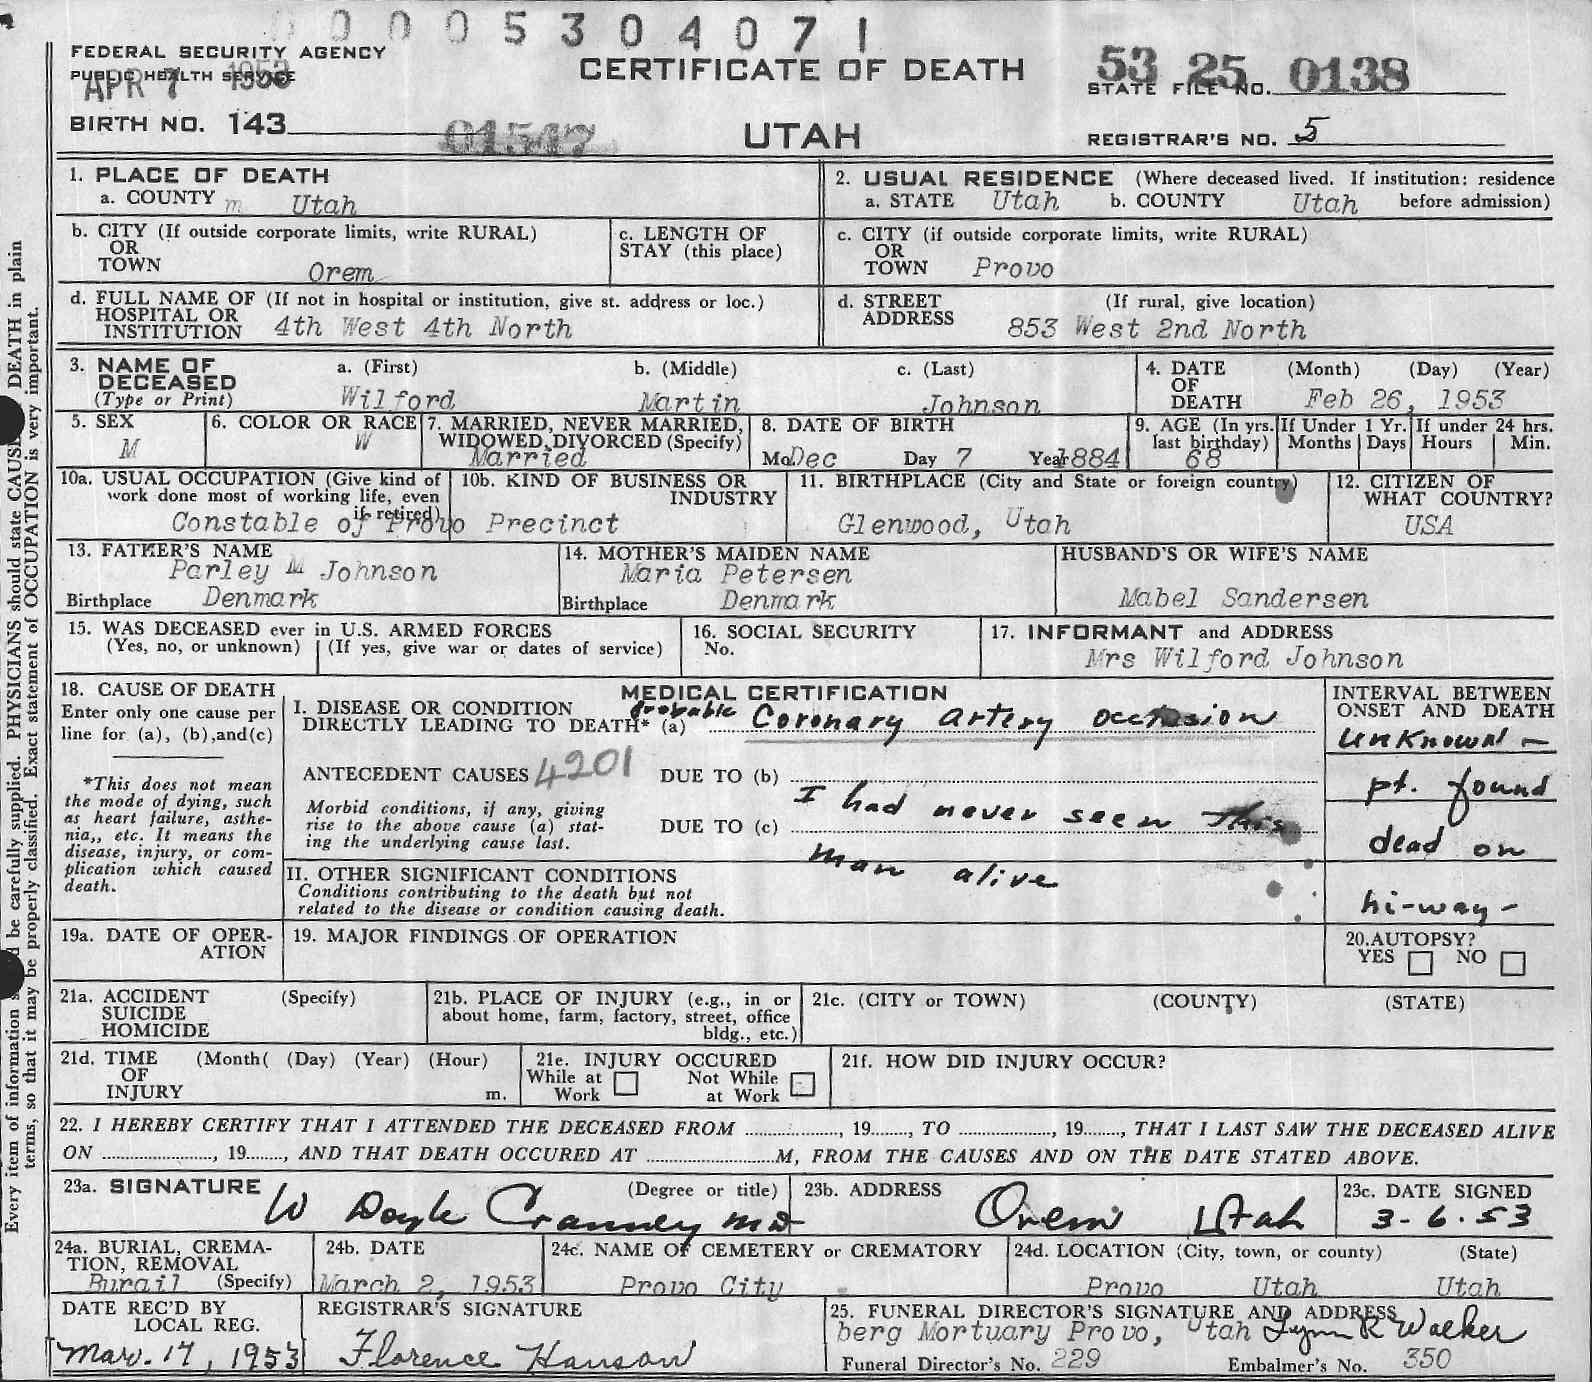 0 0 0 5 3 0 4 0 7 1
FEDERAL SECURITY AGENCY
PUBLIC HEALTH SERVICE
APR 7 1953
CERTIFICATE OF DEATH
53 25 0138
STATE FILE NO.
BIRTH NO. 143
01547
UTAH
REGISTRAR'S NO. 5
1. PLACE OF DEATH
a. COUNTY m Utah
2. USUAL RESIDENCE (Where deceased lived. If institution: residence before admission)
a. STATE Utah b. COUNTY Utah
b. CITY (If outside corporate limits, write RURAL)
OR
TOWN Orem
c. LENGTH OF
STAY (this place)
c. CITY (if outside corporate limits, write RURAL)
OR
TOWN Provo
d. FULL NAME OF (If not in hospital or institution, give st. address or loc.)
HOSPITAL OR
INSTITUTION 4th West 4th North
d. STREET (If rural, give location)
ADDRESS 853 West 2nd North
3. NAME OF DECEASED (Type or Print)
a. (First) b. (Middle) c. (Last)
Wilford Martin Johnson
4. DATE OF DEATH (Month) (Day) (Year)
Feb 26, 1953
5. SEX
M
6. COLOR OR RACE
W
7. MARRIED, NEVER MARRIED,
WIDOWED, DIVORCED (Specify)
Married
8. DATE OF BIRTH
Mo. Dec Day 7 Year 1884
9. AGE (In yrs. last birthday)
68
If Under 1 Yr. Months Days
If under 24 hrs. Hours Min.
10a. USUAL OCCUPATION (Give kind of
work done most of working life, even
if retired)
10b. KIND OF BUSINESS OR
INDUSTRY
Constable of Provo Precinct
11. BIRTHPLACE (City and State or foreign country)
Glenwood, Utah
12. CITIZEN OF
WHAT COUNTRY?
USA
13. FATHER'S NAME
Parley M Johnson
Birthplace Denmark
14. MOTHER'S MAIDEN NAME
Maria Petersen
Birthplace Denmark
HUSBAND'S OR WIFE'S NAME
Mabel Sandersen
15. WAS DECEASED ever in U.S. ARMED FORCES
(Yes, no, or unknown) (If yes, give war or dates of service)
16. SOCIAL SECURITY
No.
17. INFORMANT and ADDRESS
Mrs Wilford Johnson
18. CAUSE OF DEATH
Enter only one cause per
line for (a), (b), and (c)
*This does not mean
the mode of dying, such
as heart failure, asthe-
nia,, etc. It means the
disease, injury, or com-
plication which caused
death.
MEDICAL CERTIFICATION
I. DISEASE OR CONDITION
DIRECTLY LEADING TO DEATH* (a) probable Coronary artery occlusion
ANTECEDENT CAUSES 4201 DUE TO (b)
Morbid conditions, if any, giving
rise to the above cause (a) stat-
ing the underlying cause last.
DUE TO (c)
I had never seen this
man alive
II. OTHER SIGNIFICANT CONDITIONS
Conditions contributing to the death but not
related to the disease or condition causing death.
INTERVAL BETWEEN
ONSET AND DEATH
unknown -
pt. found
dead on
hi-way -
19a. DATE OF OPER-
ATION
19. MAJOR FINDINGS OF OPERATION
20. AUTOPSY?
YES NO
21a. ACCIDENT (Specify)
SUICIDE
HOMICIDE
21b. PLACE OF INJURY (e.g., in or
about home, farm, factory, street, office
bldg., etc.)
21c. (CITY or TOWN) (COUNTY) (STATE)
21d. TIME (Month( (Day) (Year) (Hour)
OF
INJURY m.
21e. INJURY OCCURED
While at Work Not While at Work
21f. HOW DID INJURY OCCUR?
22. I HEREBY CERTIFY THAT I ATTENDED THE DECEASED FROM ................, 19......, TO ................, 19......, THAT I LAST SAW THE DECEASED ALIVE
ON ................, 19......, AND THAT DEATH OCCURED AT ..................M, FROM THE CAUSES AND ON THE DATE STATED ABOVE.
23a. SIGNATURE (Degree or title)
W Doyle Cranney MD
23b. ADDRESS
Orem Utah
23c. DATE SIGNED
3-6-53
24a. BURIAL, CREMA-
TION, REMOVAL
Burail (Specify)
24b. DATE
March 2, 1953
24c. NAME OF CEMETERY or CREMATORY
Provo City
24d. LOCATION (City, town, or county) (State)
Provo Utah Utah
DATE REC'D BY
LOCAL REG.
Mar. 17, 1953
REGISTRAR'S SIGNATURE
Florence Hanson
25. FUNERAL DIRECTOR'S SIGNATURE AND ADDRESS
berg Mortuary Provo, Utah Lynn R Walker
Funeral Director's No. 229 Embalmer's No. 350
Every item of information be carefully supplied. PHYSICIANS should state CAUSE DEATH in plain
terms, so that it may be properly classified. Exact statement of OCCUPATION is very important.